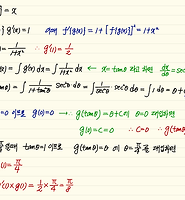 )] = x
)} g'(x) = 1   이때  f'(g(x)) = 1 + {f(g(x))}² = 1 + x²
) = 1/(1+x²)   ∴ g'(1) = 1/2
x) = ∫ g'(x) dx = ∫ 1/(1+x²) dx  ← x = tanθ 라고 하면 dx/dθ = sec
tanθ) = ∫ 1/(1+tan²θ) sec²θ dθ = ∫ 1/sec²θ sec²θ dθ = ∫ 1 dθ = θ+
= 0 이므로 g(0) = 0 → g(tanθ) = θ + C에 θ = 0 대입하면
g(0) = C = 0   ∴ C = 0   ∴ g(ta
tanθ = 1 이므로  g(tanθ) = θ 에 θ = π/4 를 대입하면
(1) = π/4
'(1) × g(1) = 1/2 × π/4 = π/8